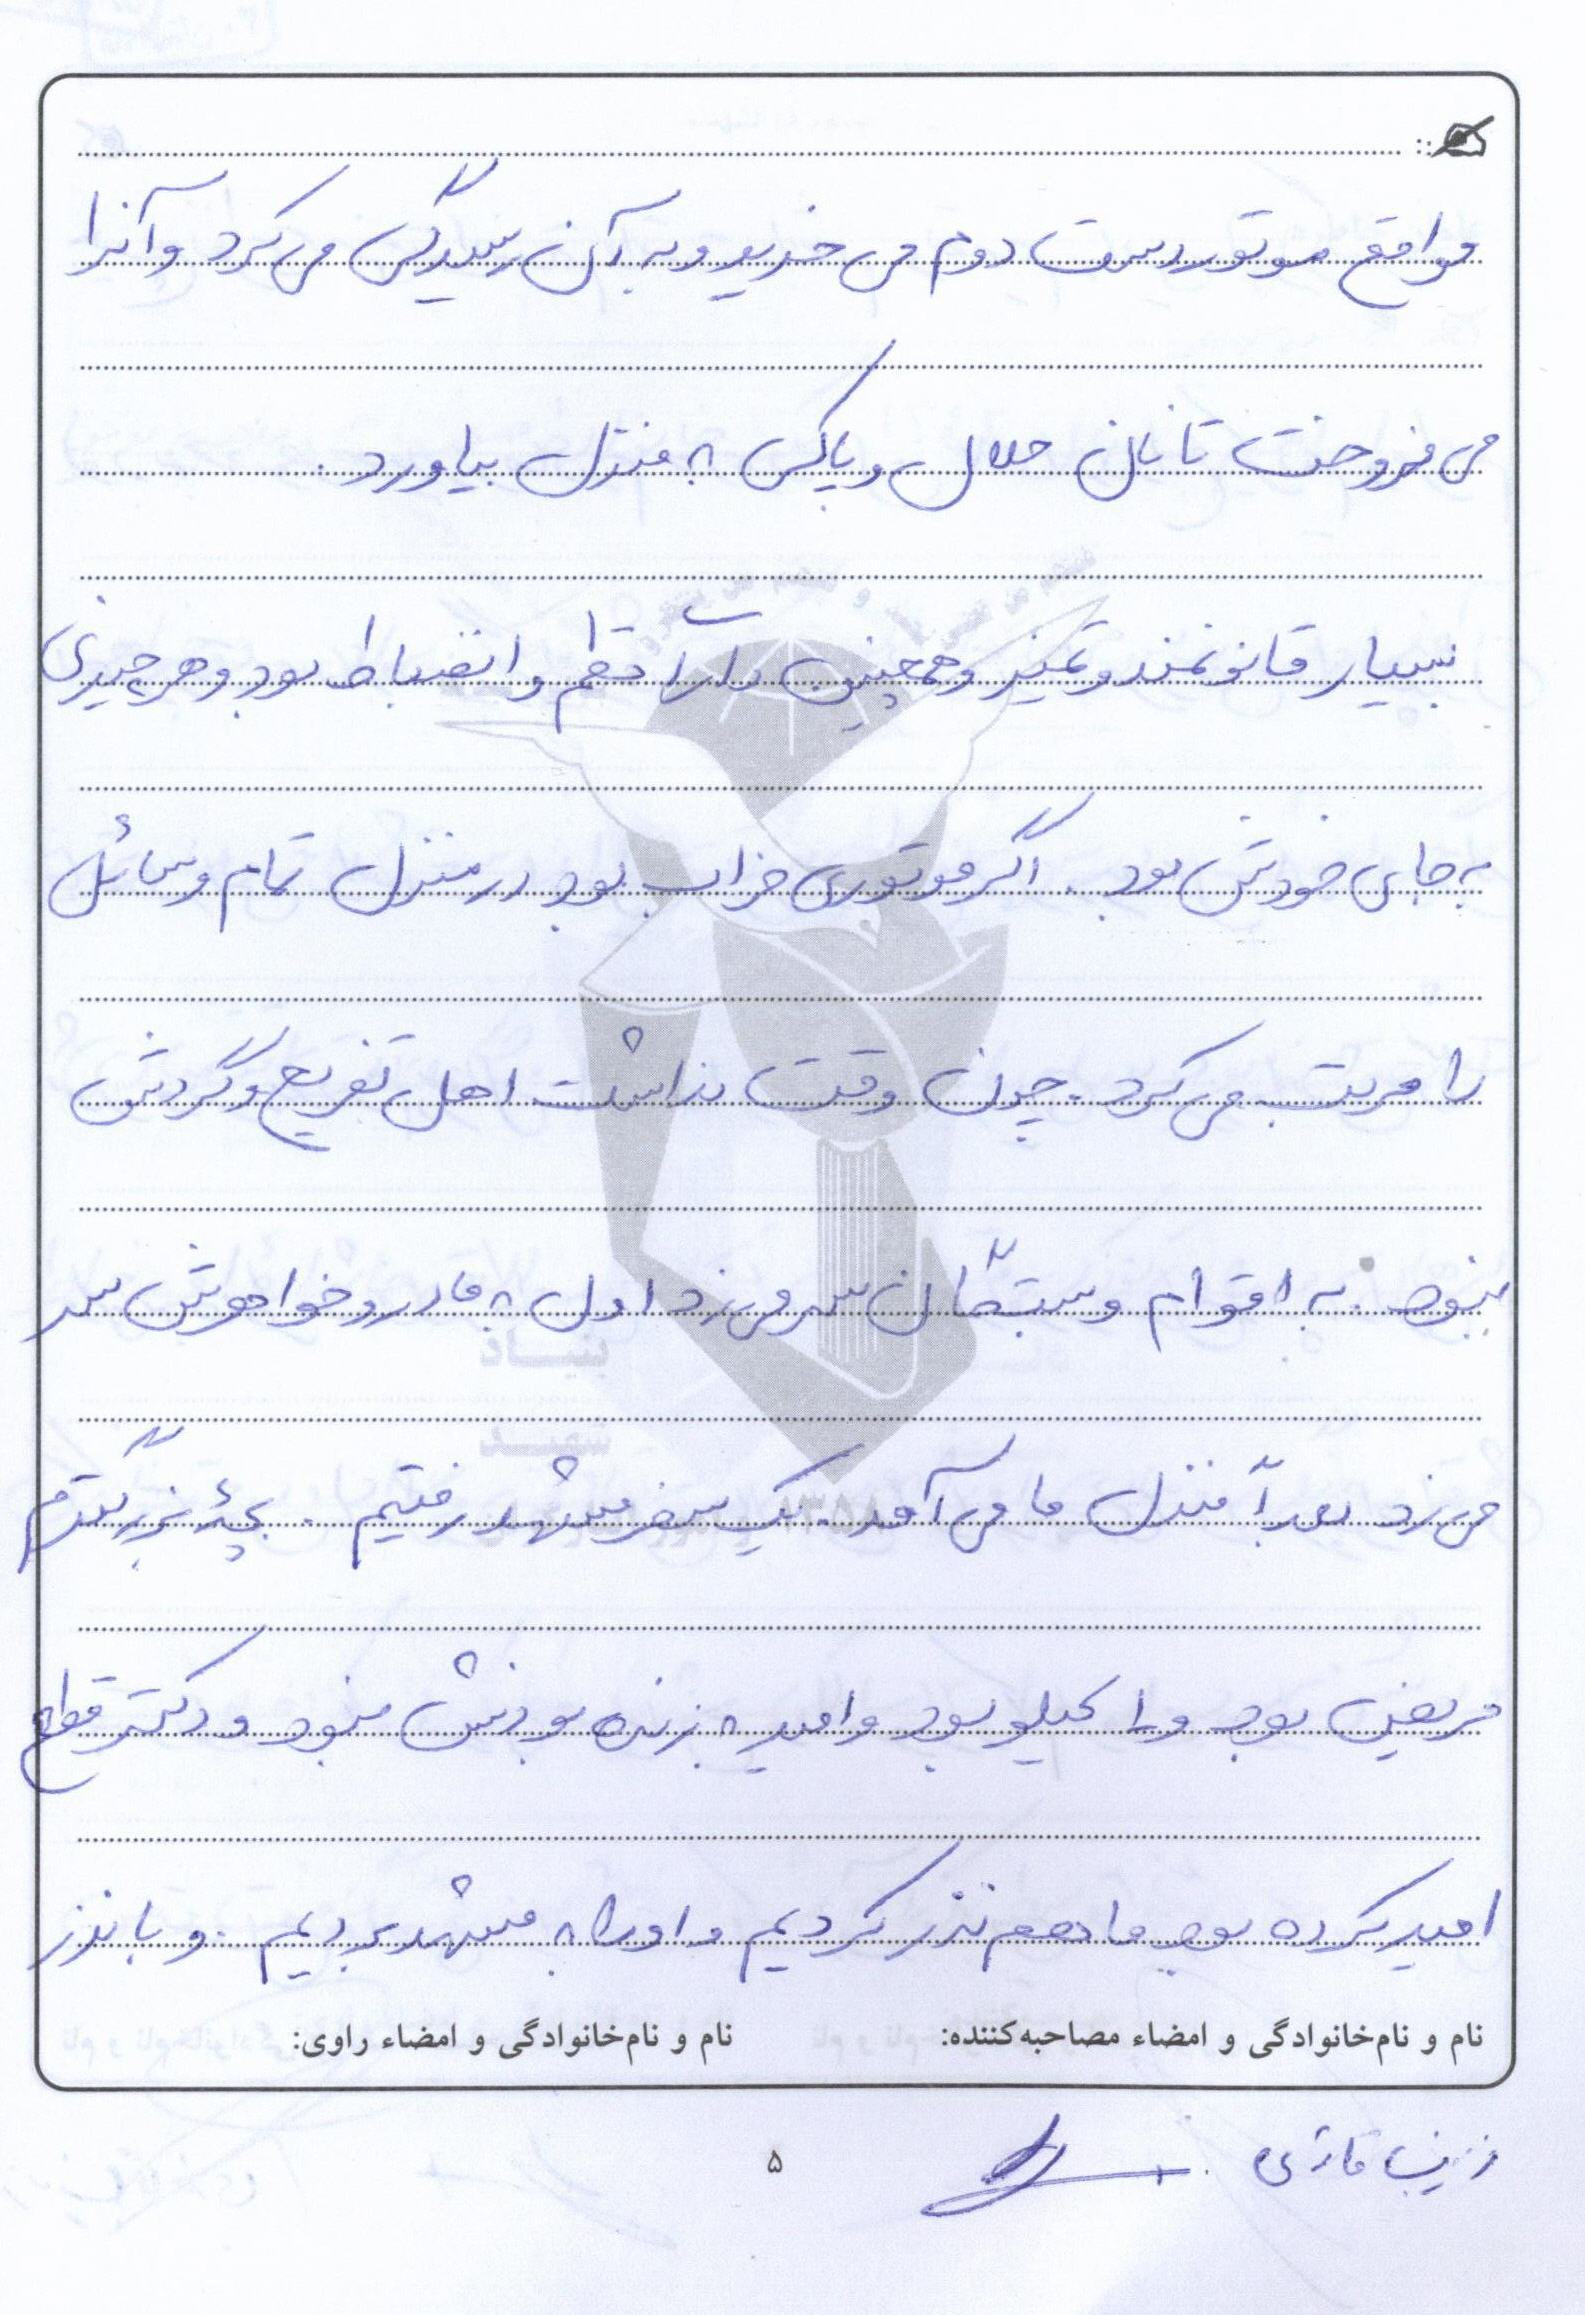 مواقع موتور دست دوم می خرید و به آن رسیدگی می کرد و آنرا
می فروخت تا نان حلال و پاکی به منزل بیاورد.
بسیار قانونمند و تمیز و همچنین دارا نظم و انضباط بود و هر چیزی
به جای خودش بود. اگر موتوری خراب بود در منزل تمام وسائل
را مرتب می کرد. چون وقت نداشت اهل تفریح و گردش
نبود. به اقوام و بستگان سر می زد اول به مادر و خواهرش سر
می زد بعداً منزل ما می آمد. یک سفر مشهد رفتیم. بچۀ بزرگترم
مریض بود و ۱۰ کیلو بود و امید به زنده بودنش نبود و دکتر قطع
امید کرده بود ما هم نذر کردیم و او را به مشهد بردیم. و با نذر
نام و نام‌خانوادگی و امضاء مصاحبه‌کننده: نام و نام‌خانوادگی و امضاء راوی:
زینب قائدی
۵
بنیاد
شهید